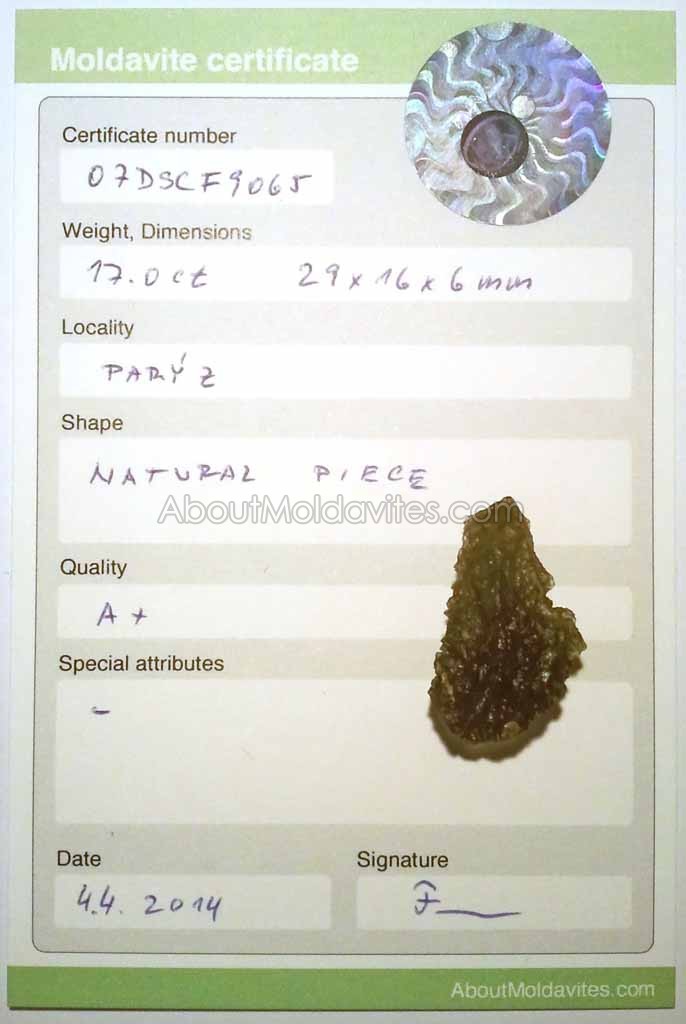 Moldavite certificate
Certificate number
07DSCF9065
Weight, Dimensions
17.0 ct 29 x 16 x 6 mm
Locality
PARÝZ
Shape
NATURAL PIECE
AboutMoldavites.com
Quality
A+
Special attributes
-
Date
Signature
4.4. 2014
AboutMoldavites.com